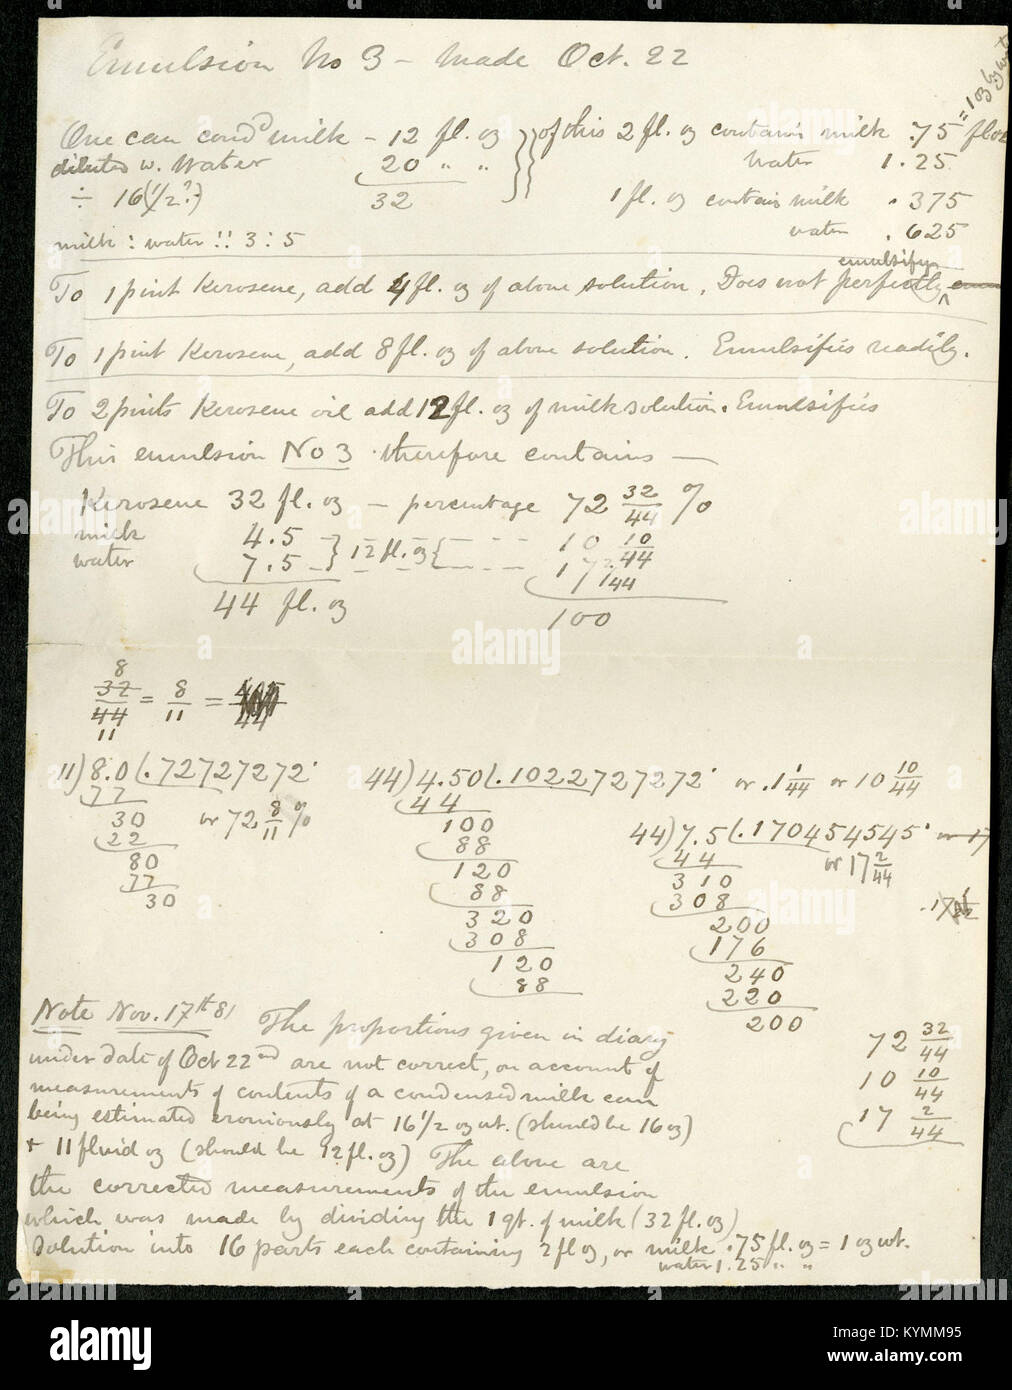 Emulsion No 3 - Made Oct. 22
= 1 oz by wt
One can cond'd milk - 12 fl. oz } of this 2 fl. oz contains milk .75 fl oz
diluted w. Water 20 " " water 1.25
÷ 16 (1/2?) 32 1 fl. oz contains milk .375
milk : water :: 3 : 5 water .625
emulsify
To 1 pint Kerosene, add 4 fl. oz of above solution. Does not perfectly ^
To 1 pint Kerosene, add 8 fl. oz of above solution. Emulsifies readily.
To 2 pints Kerosene oil add 12 fl. oz of milk solution. Emulsifies
This emulsion No 3 therefore contains —
Kerosene 32 fl. oz — percentage 72 32/44 %
milk 4.5 } 12 fl. oz { 10 10/44
water 7.5 17 2/44
44 fl. oz 100
8
32/44 = 8/11 =
11
11) 8.0 (.72727272 44) 4.50 (.1022727272 or .1 1/44 or 10 10/44
77 44
30 or 72 8/11 % 100 44) 7.5 (.170454545 or 17
22 88 44 or 17 2/44
80 120 310
77 88 308
30 320 200
308 176
120 240
88 220
200
Note Nov. 17th 81 The proportions given in diary
under date of Oct 22nd are not correct, on account of
measurements of contents of a condensed milk can
being estimated eroniously at 16 1/2 oz wt. (should be 16 oz)
+ 11 fluid oz (should be 12 fl. oz) The above are
the corrected measurements of the emulsion
which was made by dividing the 1 qt. of milk (32 fl. oz)
Solution into 16 parts each containing 2 fl oz, or milk .75 fl. oz = 1 oz wt.
water 1.25 " "
72 32/44
10 10/44
17 2/44
alamy
KYMM95
www.alamy.com